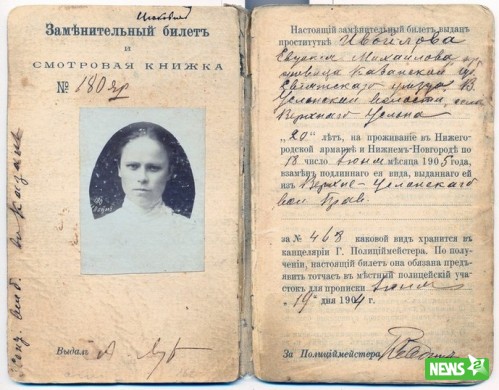 Замѣнительный билетъ
и
СМОТРОВАЯ КНИЖКА
№ 180 яр
Выдалъ
Настоящій замѣнительный билетъ выданъ
проституткѣ Ивойлова
Евдокія Михайлова
Казанской губ.
Свіяжскаго уѣзда В.
Услонской волости, села
Верхняго Услона
„20“ лѣтъ, на проживаніе въ Нижего-
родской ярмаркѣ и Нижнемъ-Новгородѣ по
18 число Іюня мѣсяца 1905 года,
взамѣнъ подлиннаго ея вида, выданнаго ей
изъ Верхне-Услонскаго
вол Прав.
за № 468 каковой видъ хранится въ
канцеляріи Г. Полиціймейстера. По полу-
ченіи, настоящій билетъ она обязана предъя-
вить тотчасъ въ мѣстный полицейскій уча-
стокъ для прописки Іюня
„19“ дня 1904 г.
За Полиціймейстера
NEWS 2